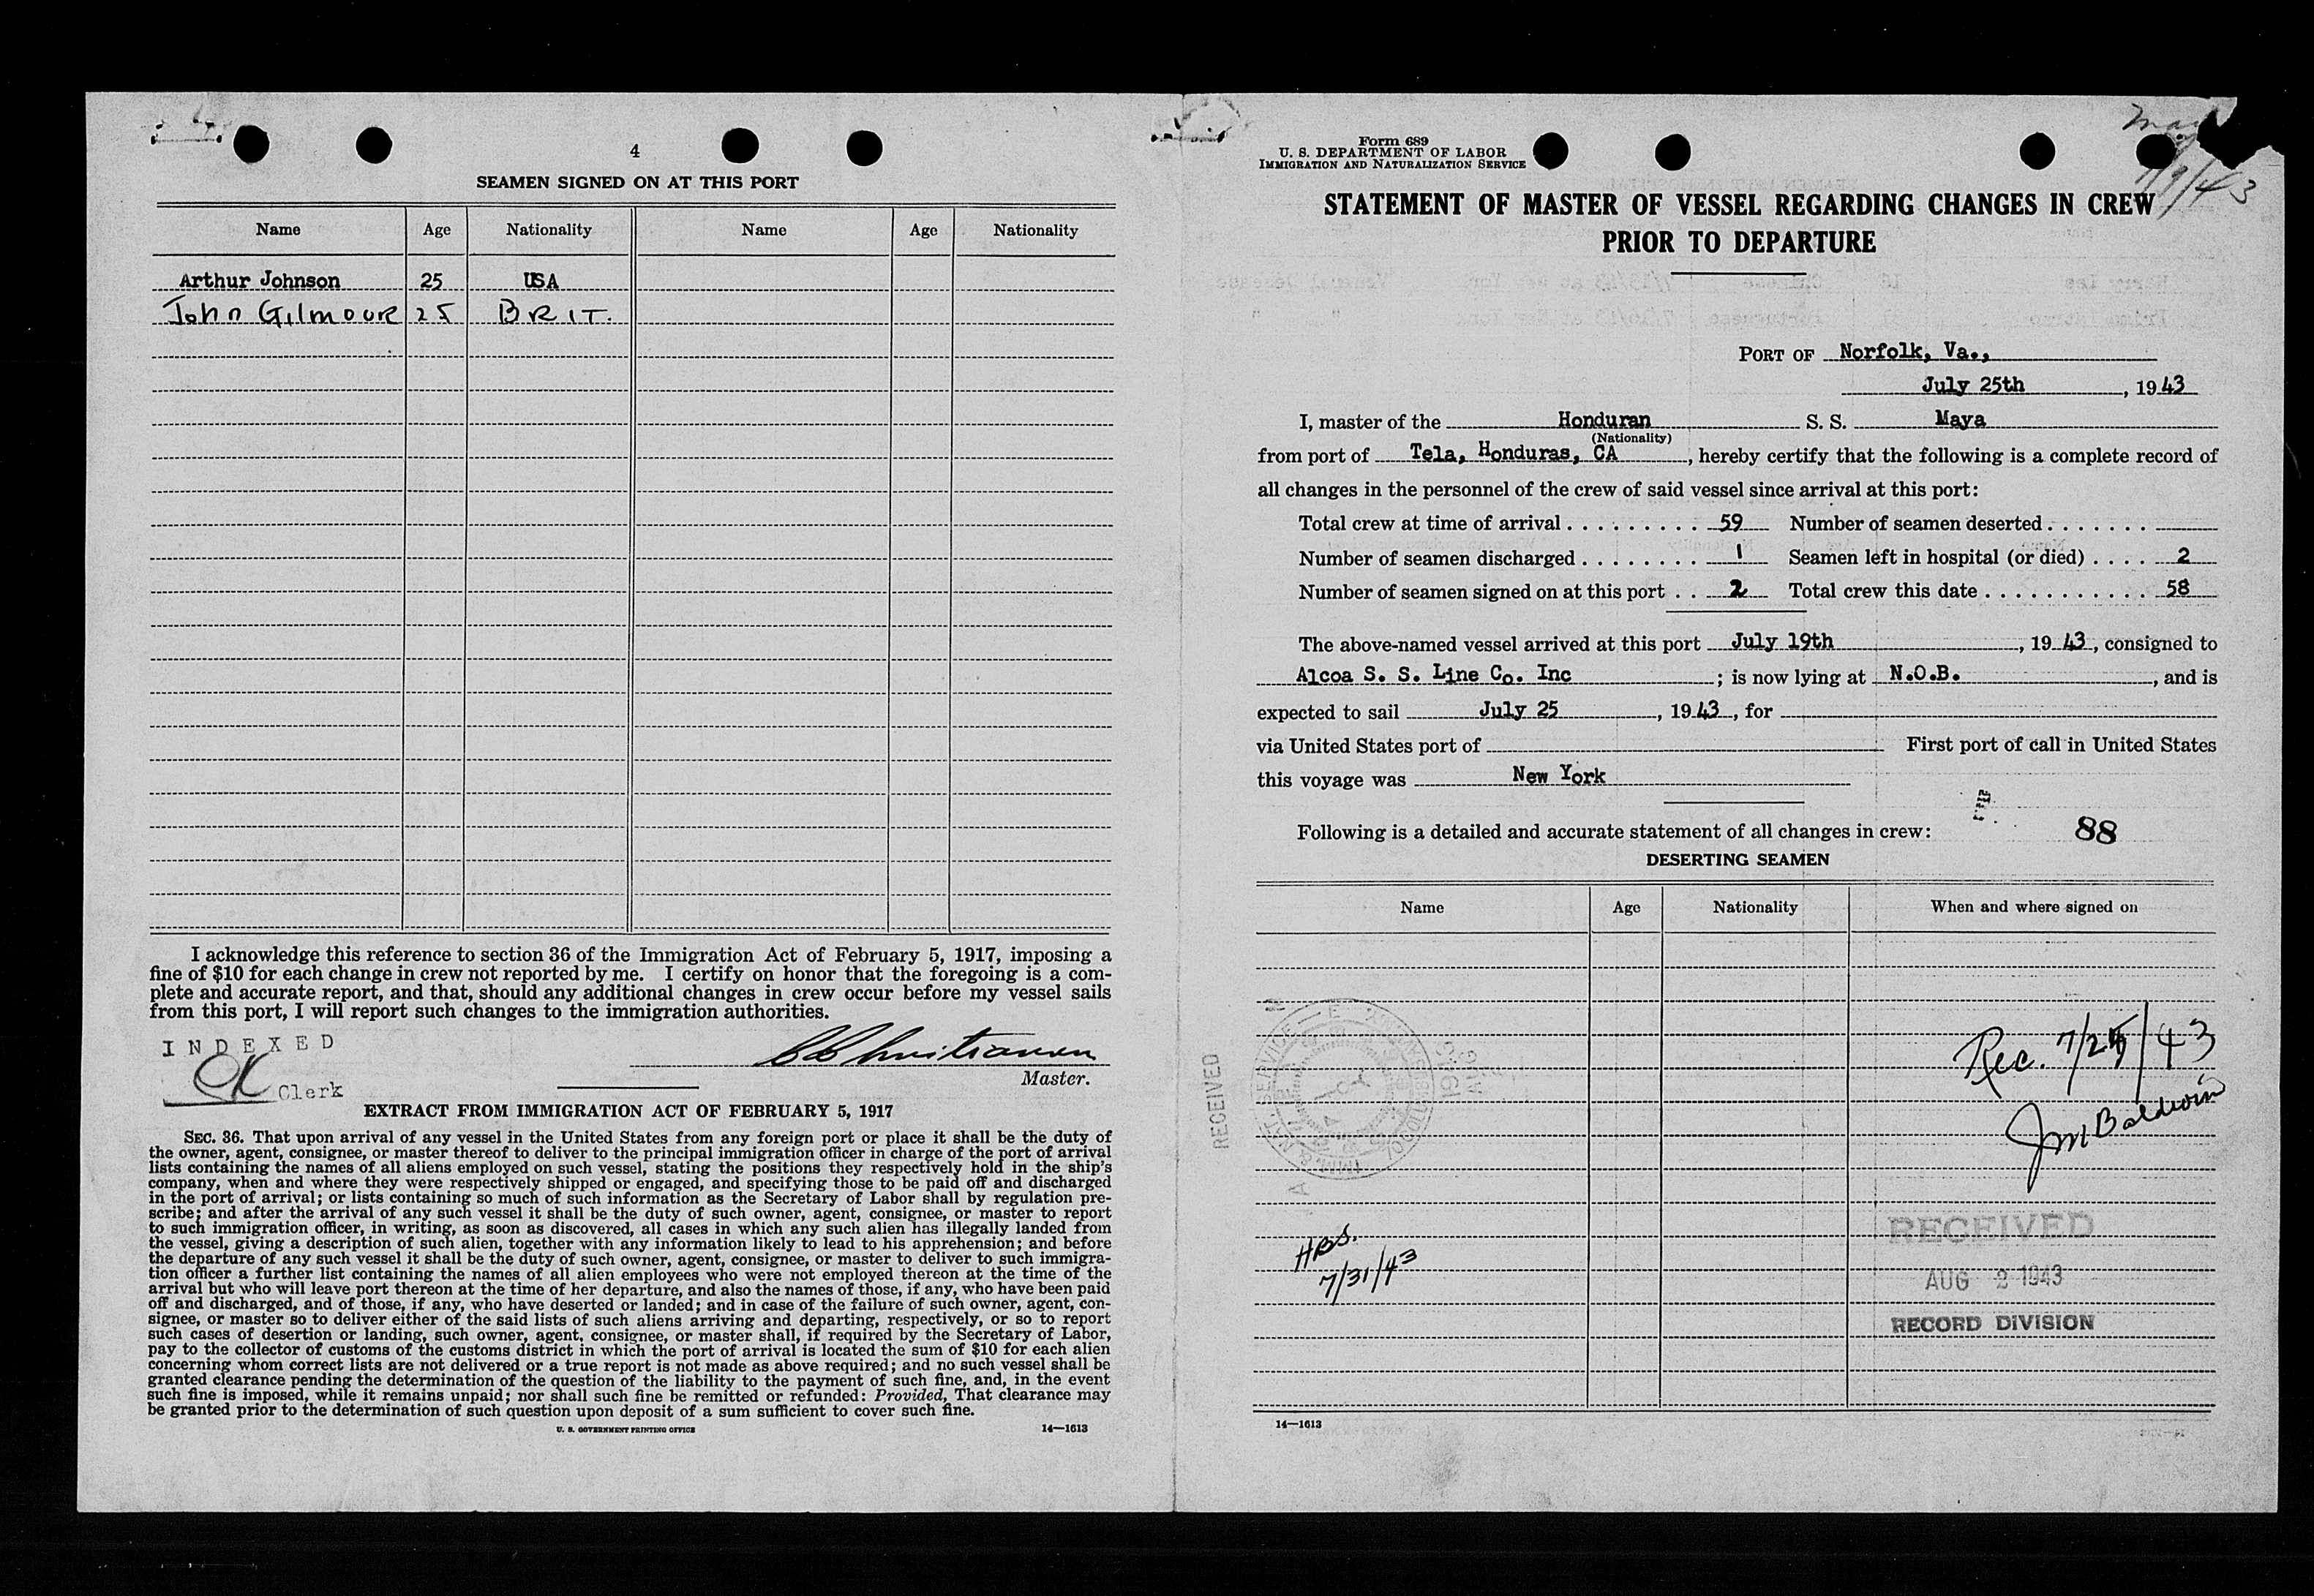 4
SEAMEN SIGNED ON AT THIS PORT
Name Age Nationality Name Age Nationality
Arthur Johnson 25 USA
John Gilmour 25 BRIT.
I acknowledge this reference to section 36 of the Immigration Act of February 5, 1917, imposing a
fine of $10 for each change in crew not reported by me. I certify on honor that the foregoing is a com-
plete and accurate report, and that, should any additional changes in crew occur before my vessel sails
from this port, I will report such changes to the immigration authorities.
INDEXED
Clerk
Master.
EXTRACT FROM IMMIGRATION ACT OF FEBRUARY 5, 1917
SEC. 36. That upon arrival of any vessel in the United States from any foreign port or place it shall be the duty of
the owner, agent, consignee, or master thereof to deliver to the principal immigration officer in charge of the port of arrival
lists containing the names of all aliens employed on such vessel, stating the positions they respectively hold in the ship's
company, when and where they were respectively shipped or engaged, and specifying those to be paid off and discharged
in the port of arrival; or lists containing so much of such information as the Secretary of Labor shall by regulation pre-
scribe; and after the arrival of any such vessel it shall be the duty of such owner, agent, consignee, or master to report
to such immigration officer, in writing, as soon as discovered, all cases in which any such alien has illegally landed from
the vessel, giving a description of such alien, together with any information likely to lead to his apprehension; and before
the departure of any such vessel it shall be the duty of such owner, agent, consignee, or master to deliver to such immigra-
tion officer a further list containing the names of all alien employees who were not employed thereon at the time of the
arrival but who will leave port thereon at the time of her departure, and also the names of those, if any, who have been paid
off and discharged, and of those, if any, who have deserted or landed; and in case of the failure of such owner, agent, con-
signee, or master so to deliver either of the said lists of such aliens arriving and departing, respectively, or so to report
such cases of desertion or landing, such owner, agent, consignee, or master shall, if required by the Secretary of Labor,
pay to the collector of customs of the customs district in which the port of arrival is located the sum of $10 for each alien
concerning whom correct lists are not delivered or a true report is not made as above required; and no such vessel shall be
granted clearance pending the determination of the question of the liability to the payment of such fine, and, in the event
such fine is imposed, while it remains unpaid; nor shall such fine be remitted or refunded: Provided, That clearance may
be granted prior to the determination of such question upon deposit of a sum sufficient to cover such fine.
U. S. GOVERNMENT PRINTING OFFICE 14—1613
Form 689
U. S. DEPARTMENT OF LABOR
IMMIGRATION AND NATURALIZATION SERVICE
STATEMENT OF MASTER OF VESSEL REGARDING CHANGES IN CREW
PRIOR TO DEPARTURE
PORT OF Norfolk, Va.,
July 25th, 1943
I, master of the Honduran S. S. Maya
(Nationality)
from port of Tela, Honduras, CA, hereby certify that the following is a complete record of
all changes in the personnel of the crew of said vessel since arrival at this port:
Total crew at time of arrival 59 Number of seamen deserted
Number of seamen discharged 1 Seamen left in hospital (or died) 2
Number of seamen signed on at this port 2 Total crew this date 58
The above-named vessel arrived at this port July 19th, 1943, consigned to
Alcoa S. S. Line Co. Inc; is now lying at N.O.B., and is
expected to sail July 25, 1943, for
via United States port of First port of call in United States
this voyage was New York
Following is a detailed and accurate statement of all changes in crew: 88
DESERTING SEAMEN
Name Age Nationality When and where signed on
RECEIVED
Rec. 7/25/43
JM Baldwin
HBS.
7/31/43
RECEIVED
AUG 2 1943
RECORD DIVISION
14—1613